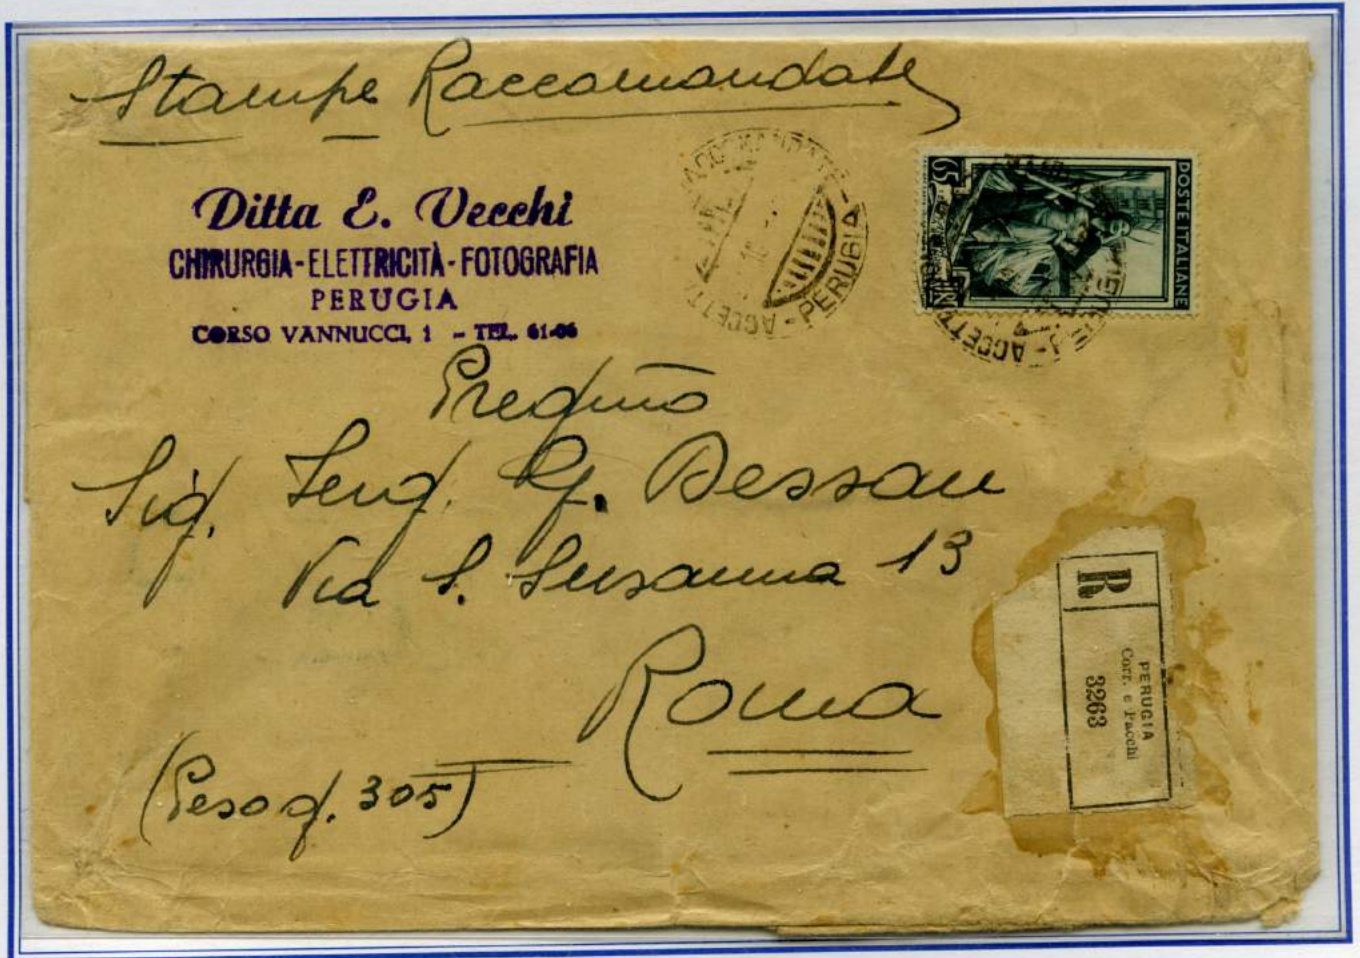 Stampe Raccomandate
Ditta E. Vecchi
CHIRURGIA-ELETTRICITÀ-FOTOGRAFIA
PERUGIA
CORSO VANNUCCI, 1 - TEL. 61-06
RACCOMANDATE - PERUGIA - ACCETTA
65
POSTE ITALIANE
ACCETT
Pregmo
Sig. Ing. G. Dessau
Via S. Susanna 13
Roma
(Peso g. 305)
R
PERUGIA
Corr. e Pacchi
3263